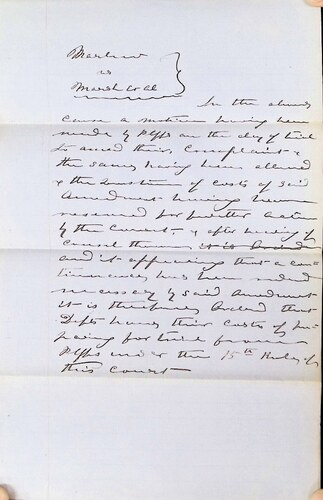 Marlow
vs
Marsh et al
In the above
cause a motion having been
made by Plffs on the day of trial
to amend their Complaint &
the same having been allowed
& the Question of costs of said
Amendment having been
reserved for further action
by the Court - & after hearing of
counsel thereon it is Ordered
and it appearing that a con-
tinuance has been rendered
necessary by said Amendment
it is therefore Ordered that
Defts have their costs of pre-
paring for trial from
Plffs under the 15th Rule of
this Court